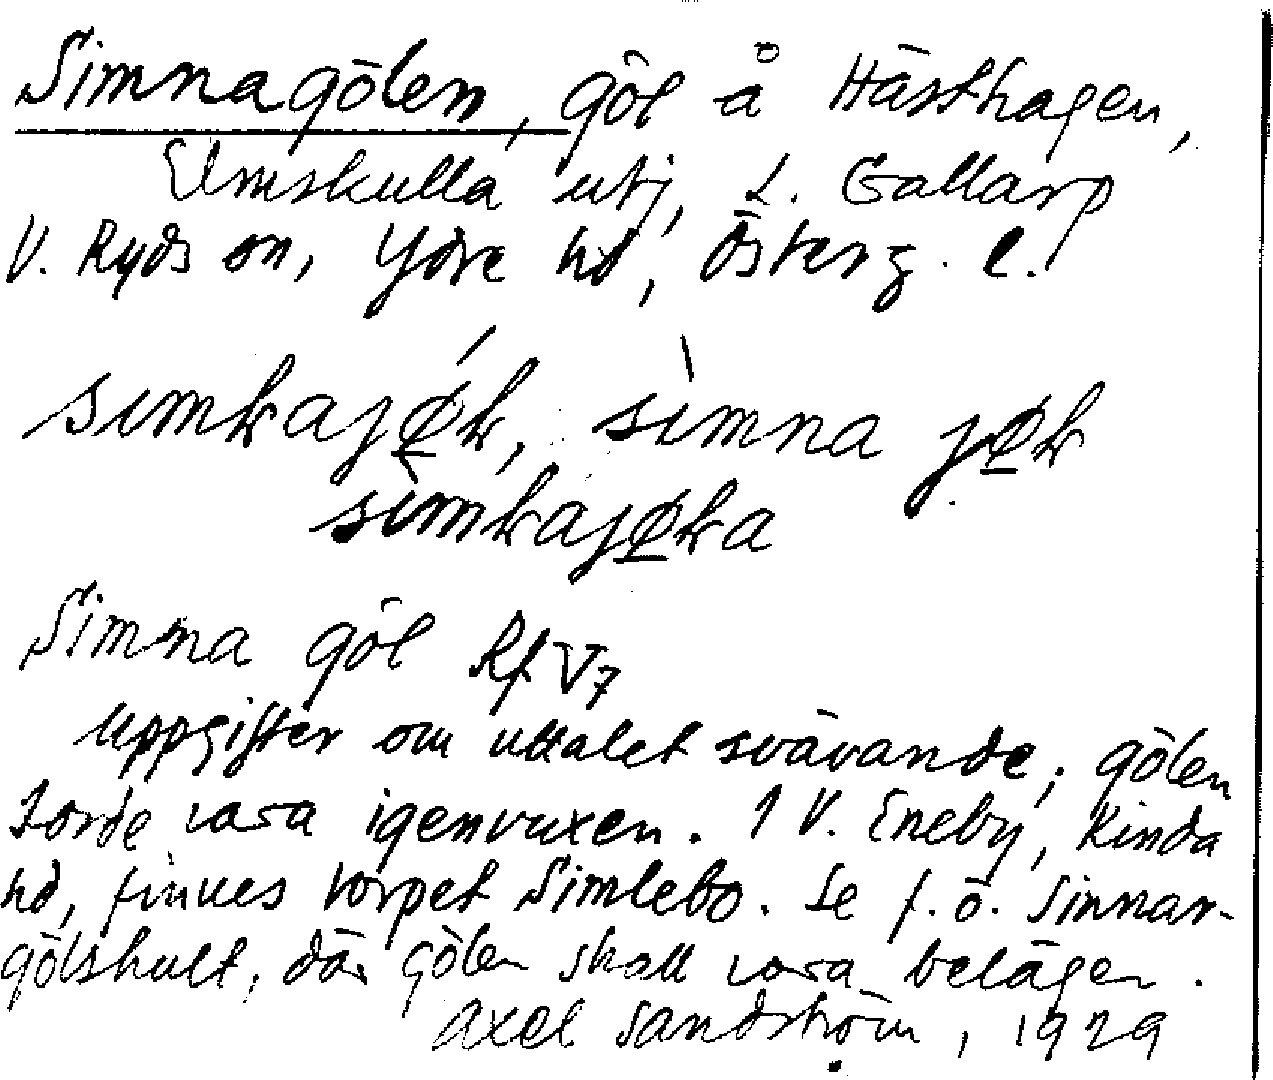 Simnagölen, göl å Hästhagen,
Elmskulla utj, L. Gallarp
V. Ryds sn, Ydre hd, Österg. l.
simkajøk, simna jøk
simkajøka
Simna göl Rf V7
Uppgifter om uttalet svävande; gölen
torde vara igenvuxen. I V. Eneby, Kinda
hd, finnes torpet Simlebo. Se f. ö. Simnar-
gölshult, där gölen skall vara belägen.
Axel Sandström, 1929